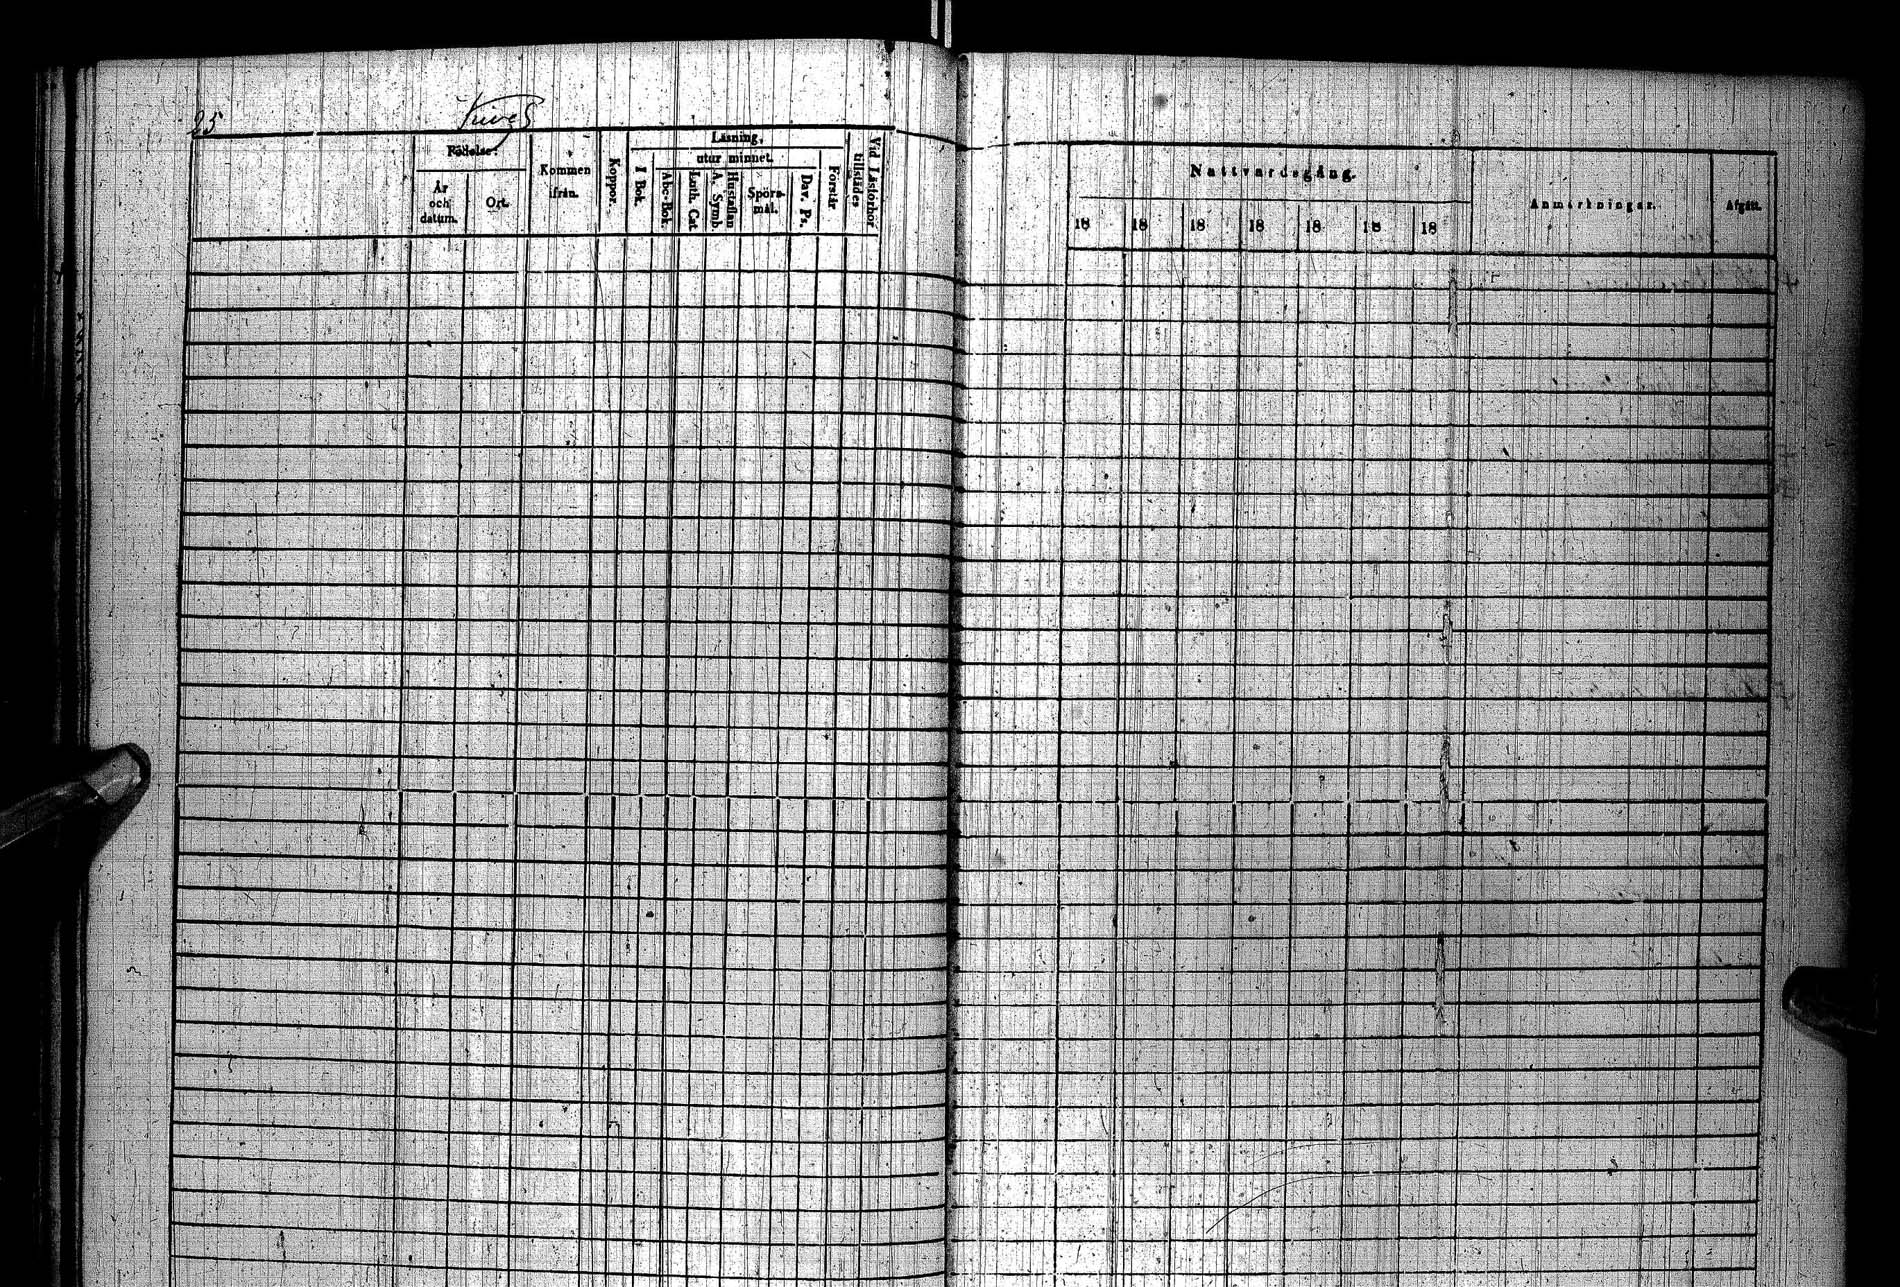 25
Läsning,
Födelse:
utur minnet.
Kommen ifrån.
Koppor.
I Bok.
Abc-Bok.
Luth. Cat.
A. Symb.
Hustaflan
Spörs-
mål.
Dav. Ps.
Förstår
Vid Läsförhör
tillstädes
År
och
datum.
Ort.
Nattvardsgång.
Anmärkningar.
Afgått.
18 18 18 18 18 18 18